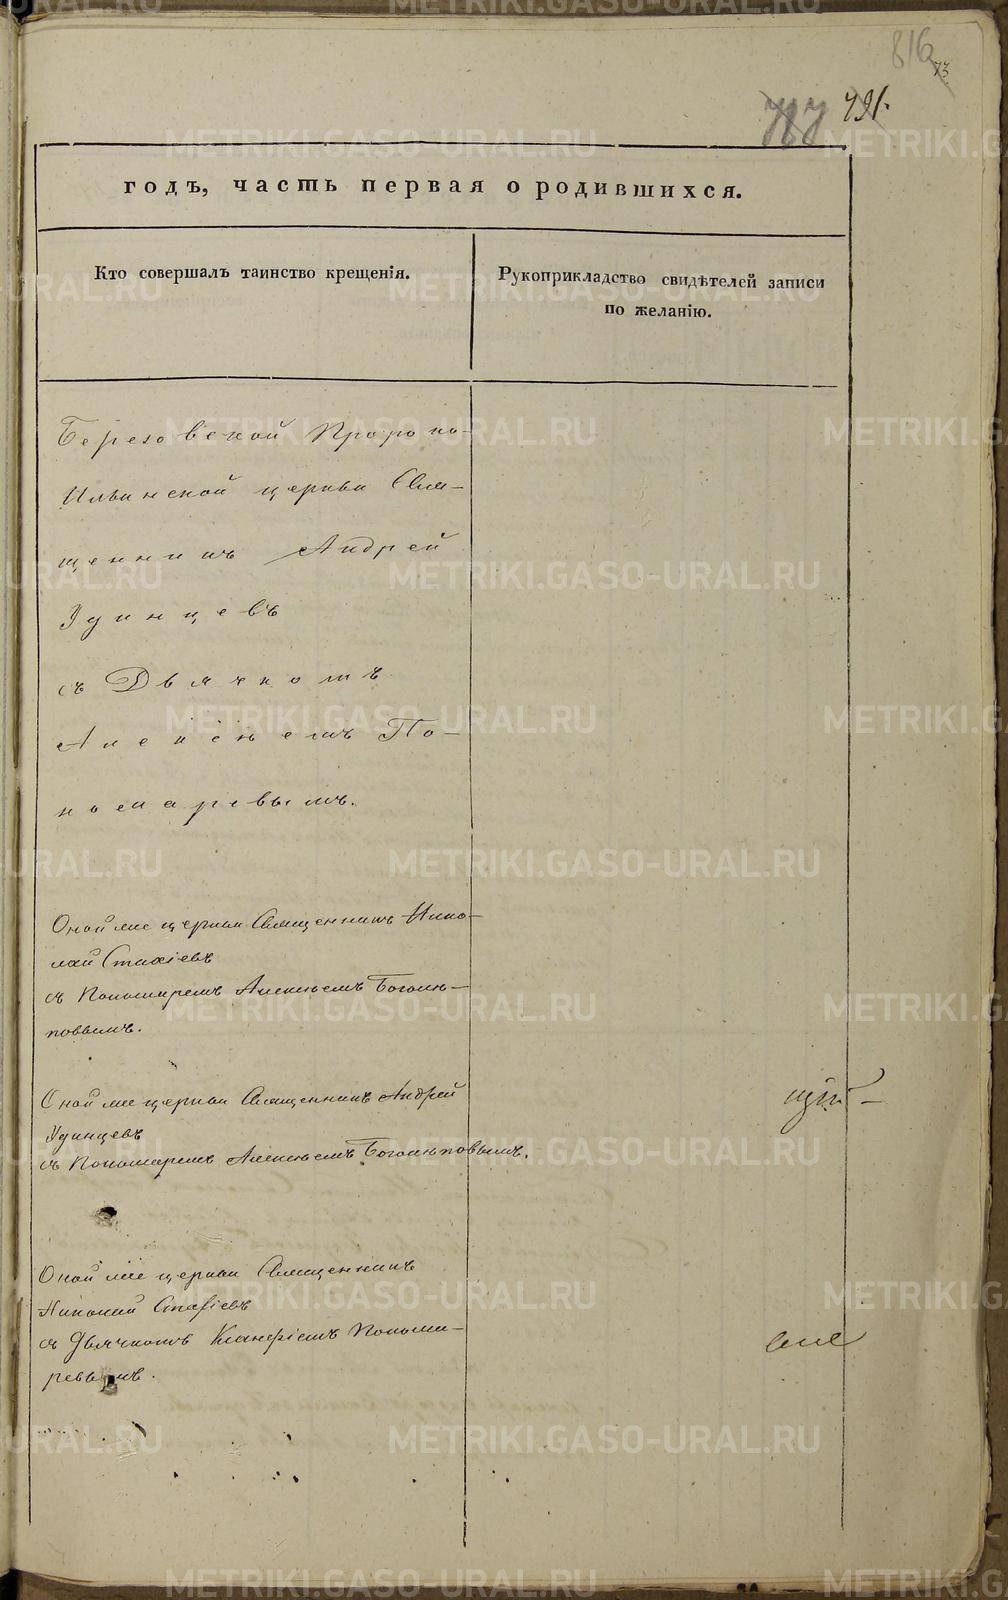 816
73.
791.
годъ, часть первая о родившихся.
Кто совершалъ таинство крещенія.
Рукоприкладство свидѣтелей записи
по желанію.
Березовской Пророко-
Ильинской церкви Свя-
щенникъ Андрей
Удинцевъ
съ Дьячкомъ
Алексѣемъ По-
номаревымъ.
Оной же церкви Священникъ Нико-
лай Стахіевъ
съ Пономаремъ Алексѣемъ Боголѣ-
повымъ.
Оной же церкви Священникъ Андрей
Удинцевъ
съ Пономаремъ Алексѣемъ Боголѣповымъ.
Оной же церкви Священникъ
Николай Стафіевъ
съ Дьячкомъ Ксанфіемъ Понома-
ревымъ.
METRIKI.GASO-URAL.RU